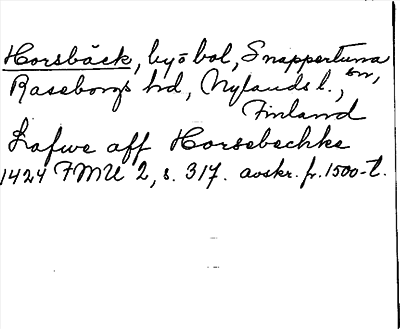 Horsbäck, by o bol, Snappertuna sn,
Raseborgs hd, Nylands l.,
Finland
Lafwe aff Horsebechke
1424 FMU 2, s. 317. avskr. fr. 1500-t.